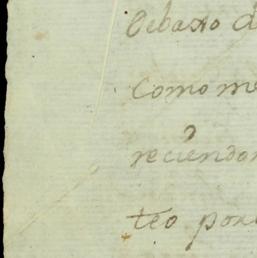 Debaxo d
Como me
reciendon
teo pon